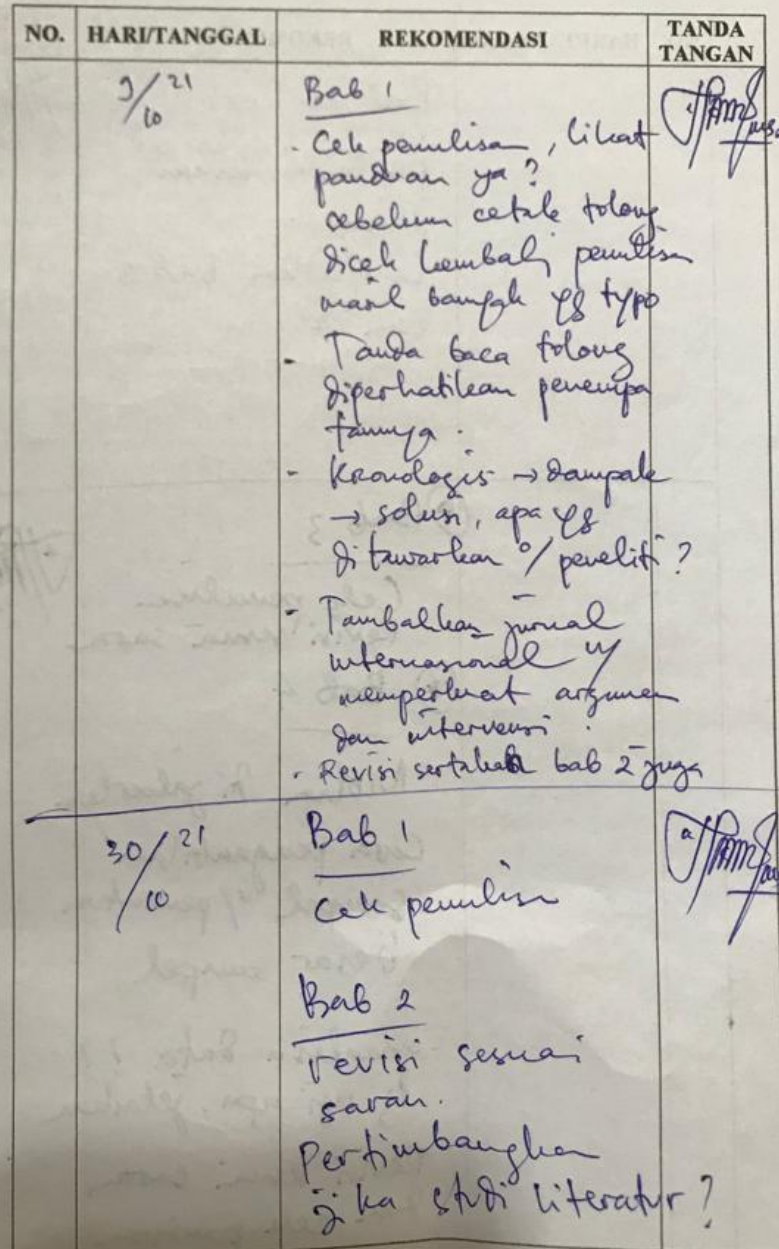 NO. HARI/TANGGAL REKOMENDASI TANDA TANGAN
9/10 21 Bab 1
- Cek penulisan, lihat
panduan ya?
sebelum cetak tolong
dicek kembali penulisan
masih banyak yg typo
- Tanda baca tolong
diperhatikan penempa
tannya.
- Kronologis → dampak
→ solusi, apa yg
ditawarkan o/ peneliti?
- Tambahkan jurnal
internasional u/
memperkuat argumen
dan intervensi.
- Revisi sertakan bab 2 juga
30/10 21 Bab 1
Cek penulisan
Bab 2
revisi sesuai
saran.
Pertimbangkan
jika studi literatur?